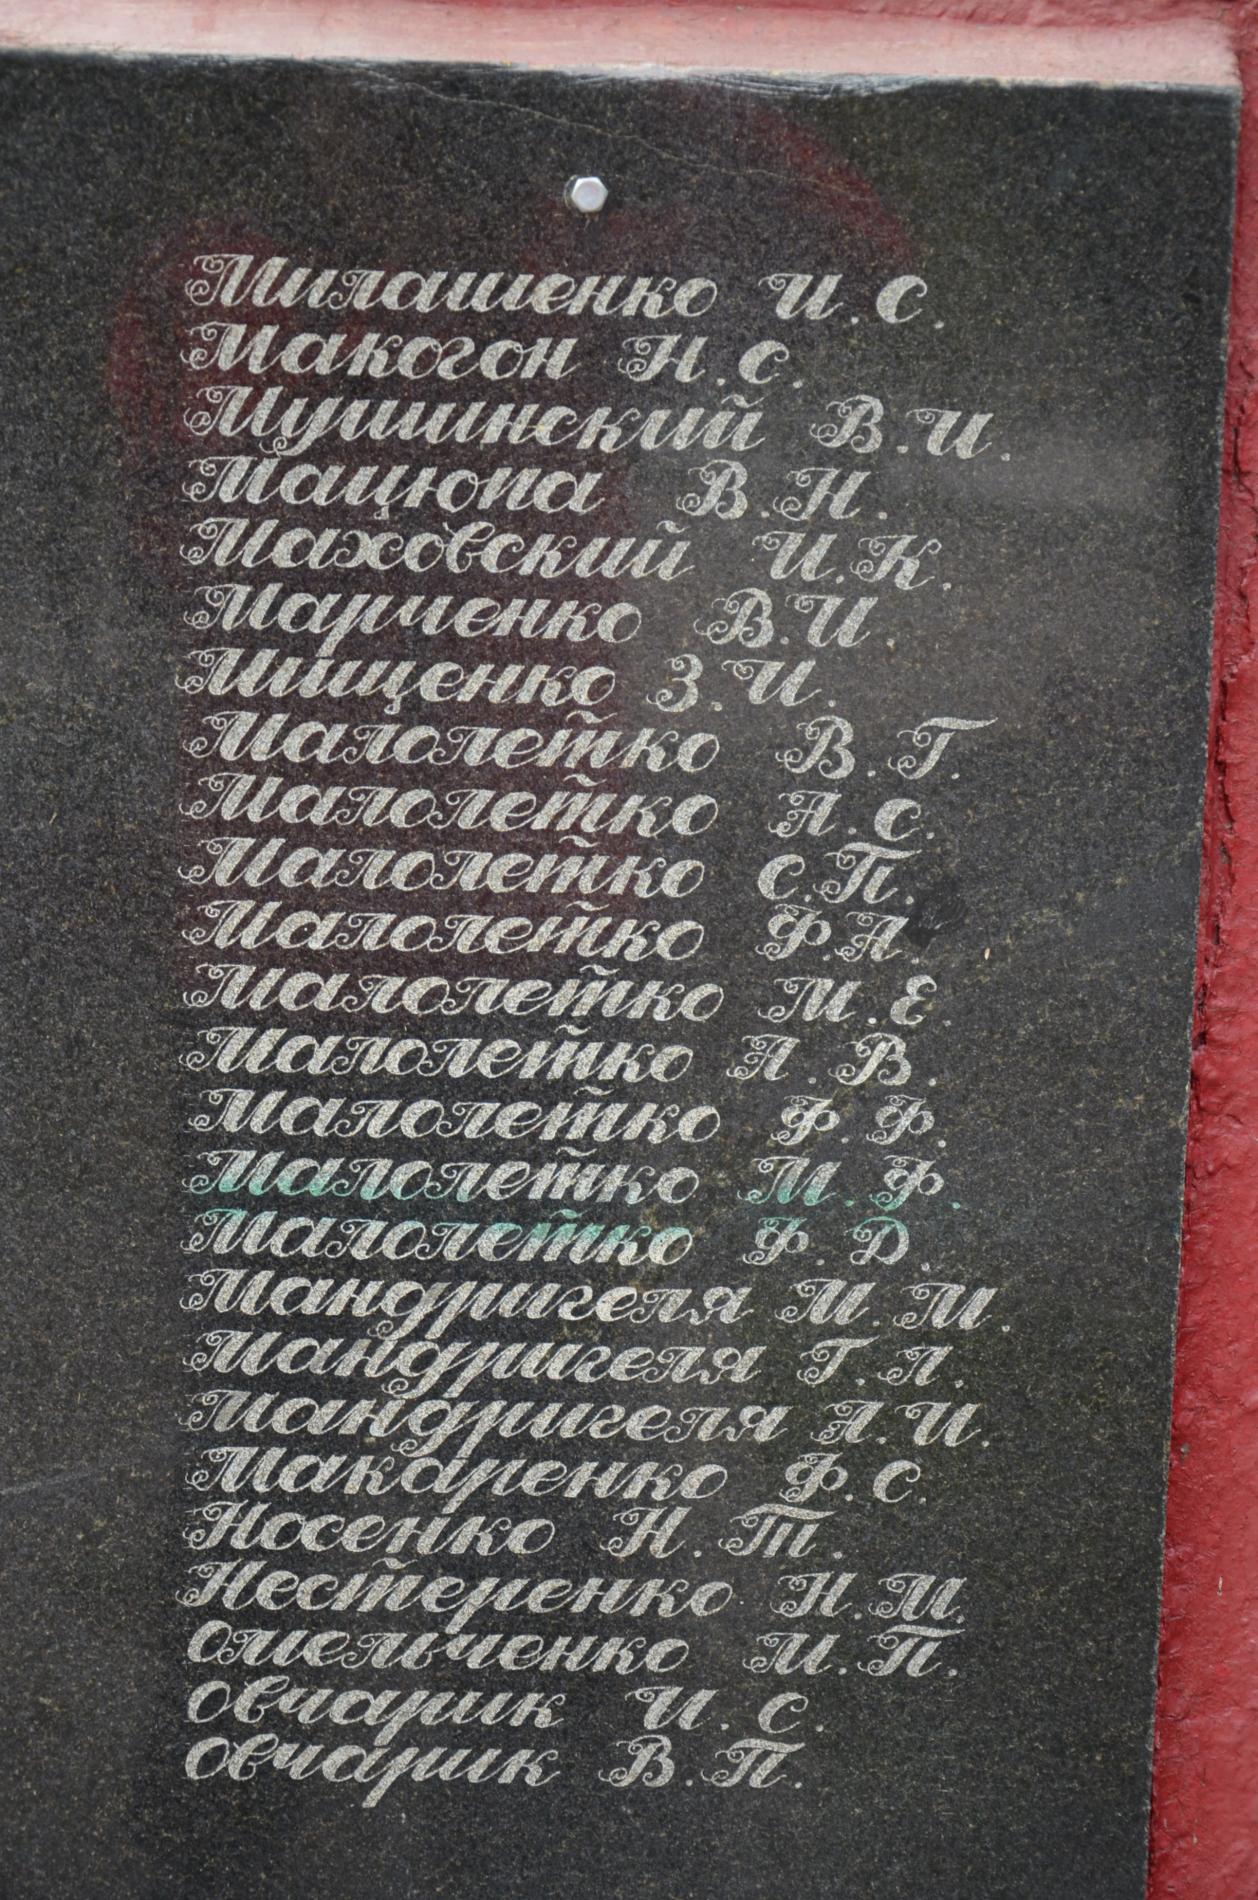 Милашенко И.С.
Макогон Н.С.
Мушинский В.И.
Мацюпа В.Н.
Маховский И.К.
Марченко В.И.
Мищенко З.И.
Малолетко В.Г.
Малолетко А.С.
Малолетко С.П.
Малолетко Ф.А.
Малолетко М.Е.
Малолетко А.В.
Малолетко Ф.Ф.
Малолетко М.Ф.
Малолетко Ф.Д.
Мандригеля М.М.
Мандригеля Г.Л.
Мандригеля А.И.
Макаренко Ф.С.
Носенко Н.Т.
Нестеренко Н.М.
Омельченко М.П.
Овчарик И.С.
Овчарик В.П.